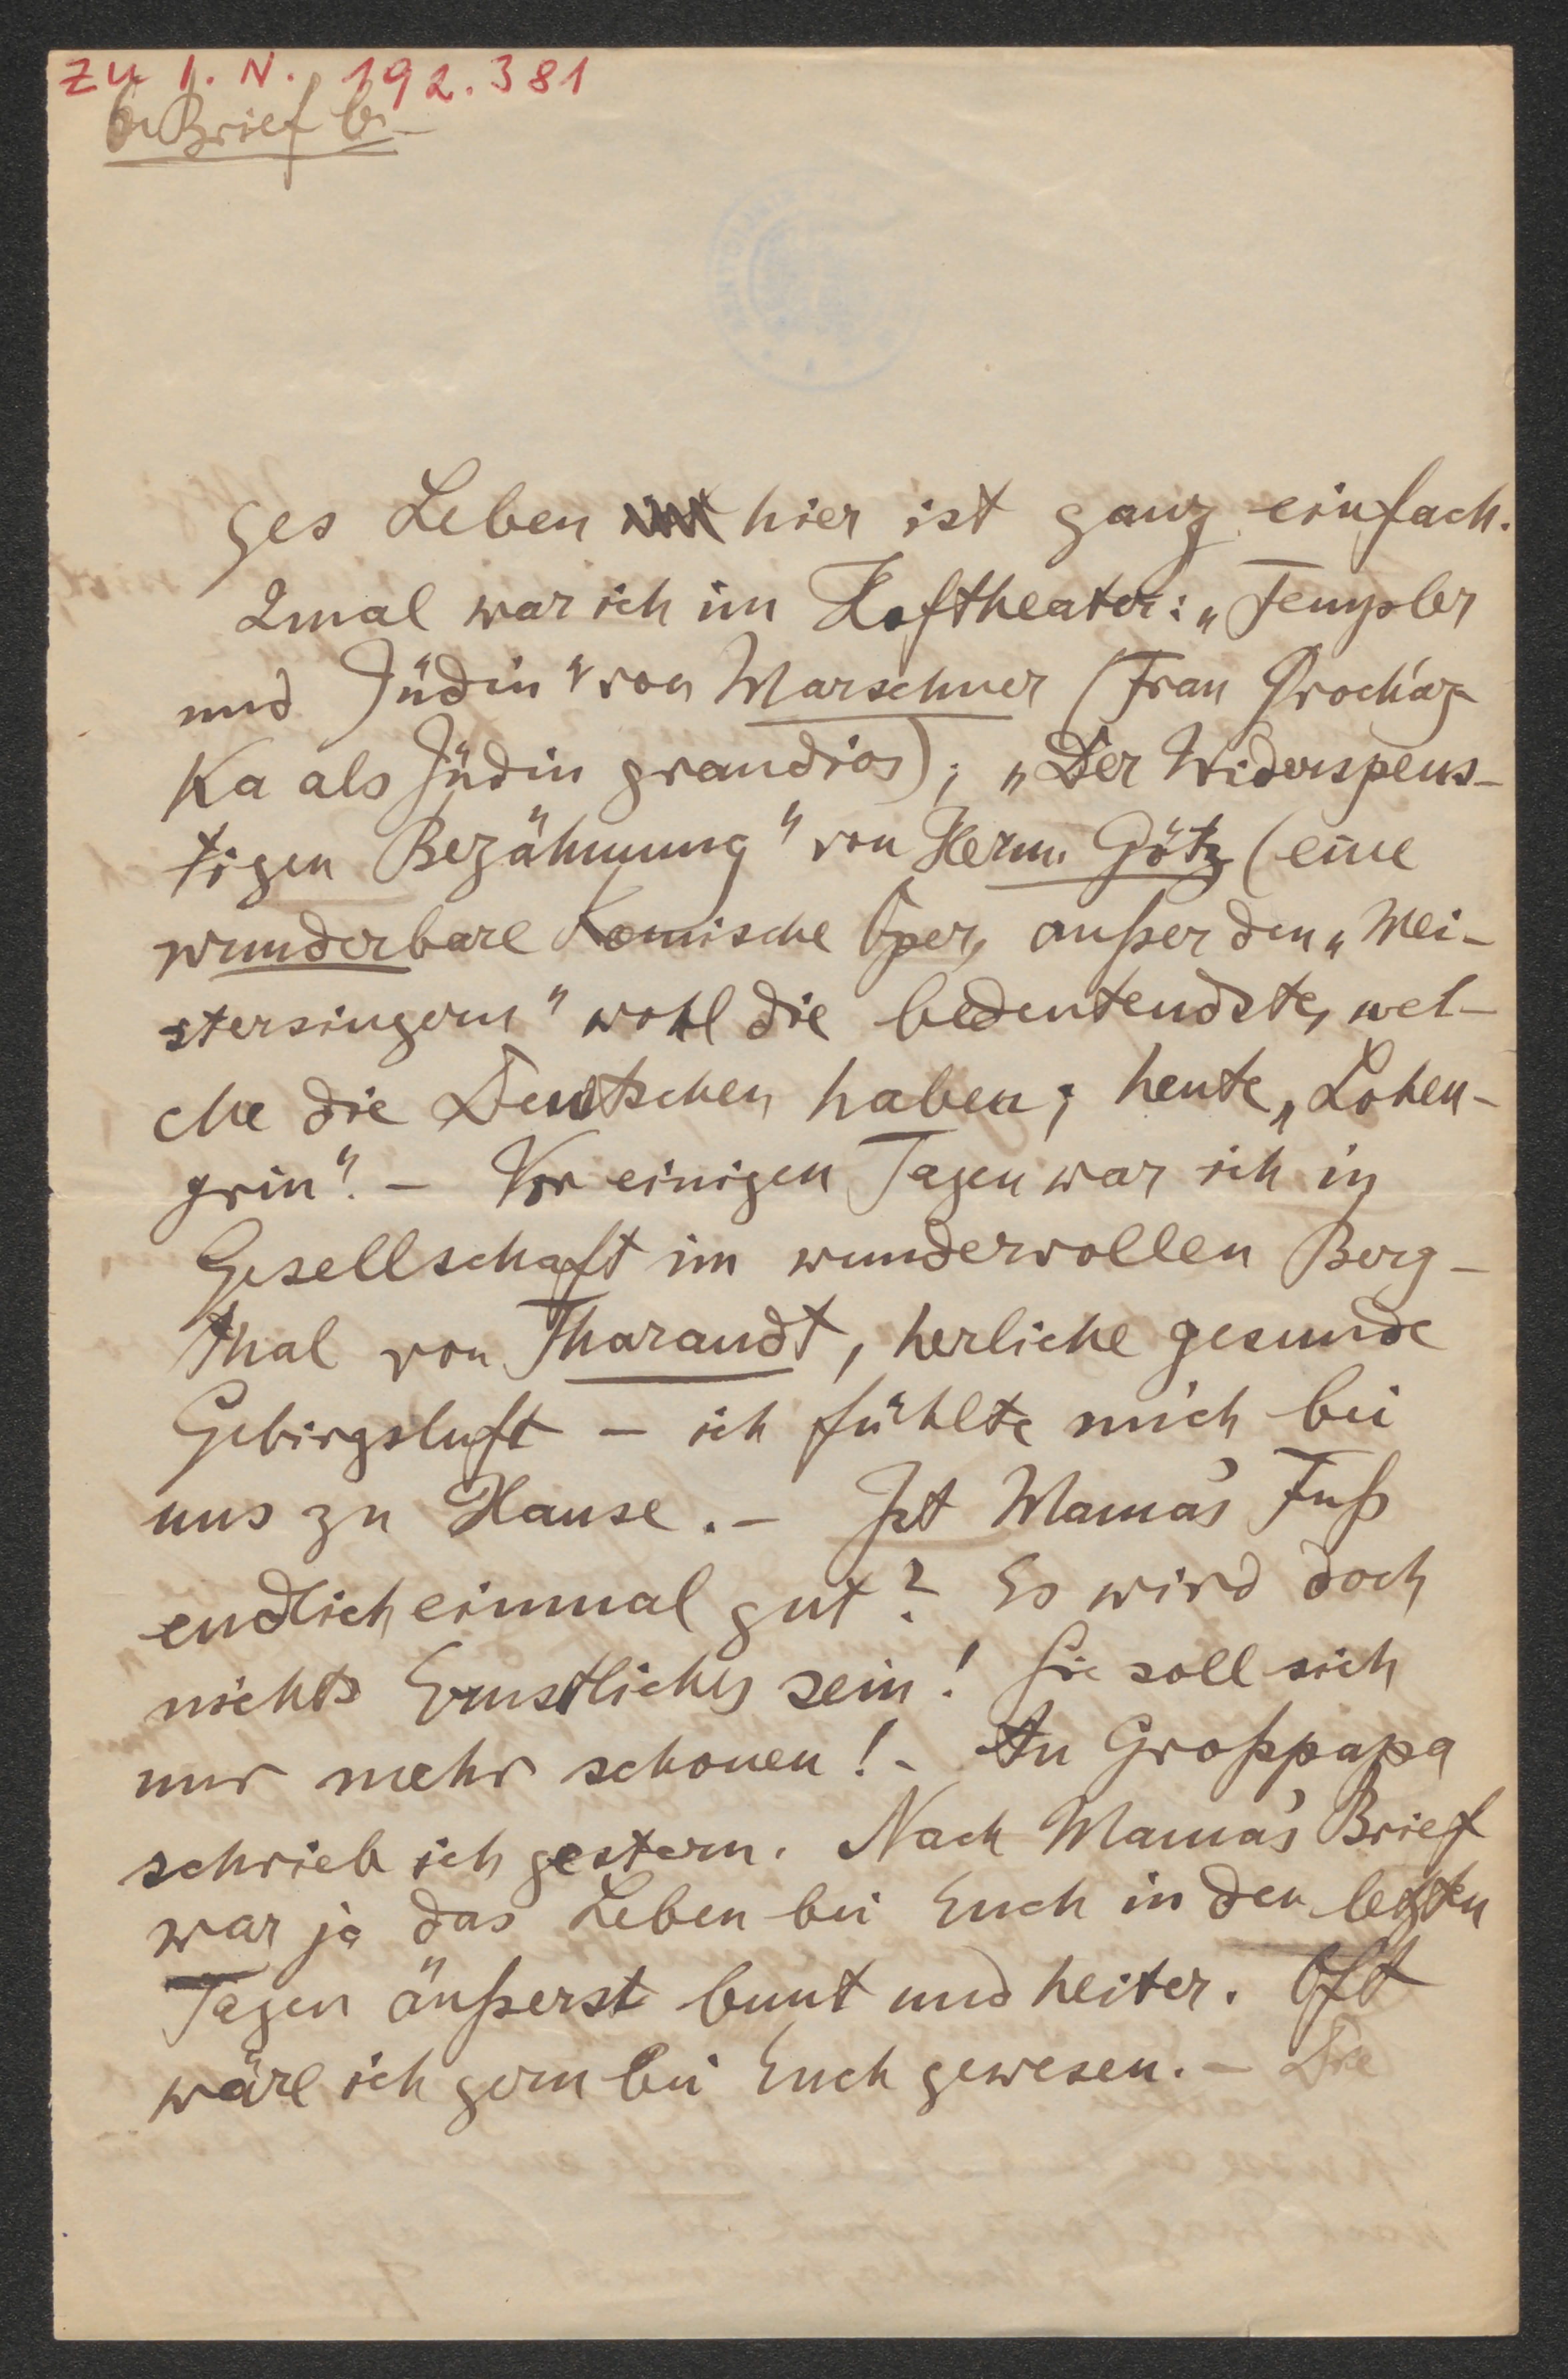 zu I. N. 192.381
Brief
ges Leben hier ist ganz einfach.
2mal war ich im Hoftheater: „Templer
und Jüdin" von Marschner (Frau Procház-
ka als Jüdin grandios); „Der Widerspens-
tigen Bezähmung" von Herm. Götz (eine
wunderbare komische Oper, außer den „Mei-
stersingern" wohl die bedeutendste, wel-
che die Deutschen haben; heute „Lohen-
grin". – Vor einigen Tagen war ich in
Gesellschaft im wundervollen Berg-
thal von Tharandt, herliche gesunde
Gebirgsluft – ich fühlte mich bei
uns zu Hause. – Ist Mama's Fuß
endlich einmal gut? Es wird doch
nichts Ernstliches sein! Sie soll sich
nur mehr schonen! – An Großpapa
schrieb ich gestern. Nach Mama's Brief
war ja das Leben bei Euch in den letzten
Tagen äußerst bunt und heiter. Oft
wäre ich gern bei Euch gewesen. – Die